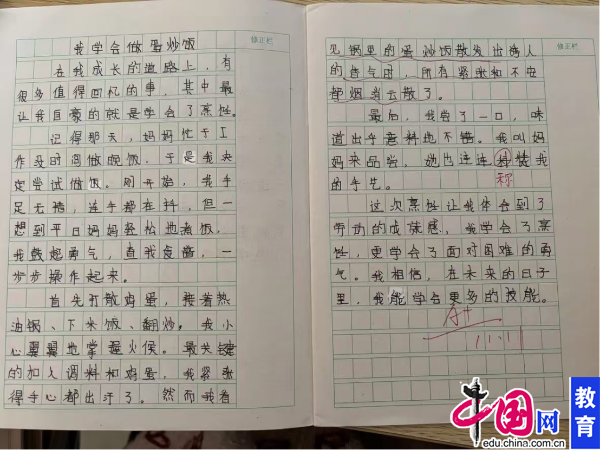 我学会做蛋炒饭
修正栏
在我成长的道路上，有
很多值得回忆的事，其中最
让我自豪的就是学会了烹饪。
记得那天，妈妈忙于工
作没时间做晚饭，于是我决
定尝试做饭。刚开始，我手
足无措，连手都在抖，但一
想到平日妈妈轻松地煮饭，
我鼓起勇气，一
步步操作起来。
首先打散鸡蛋，接着热
油锅、下米饭、翻炒，我小
心翼翼地掌握火候。最关键
的加入调料和鸡蛋，我紧张
得手心都出汗了。然而我看
修正栏
见锅里的蛋炒饭散发出诱人
的香气时，所有紧张和不安
都烟消云散了。
最后，我尝了一口，味
道出乎意料地不错。我叫妈
妈来品尝，她也连连赞我
的手艺。
称
这次烹饪让我体会到了
劳动的成就感，我学会了烹
饪，更学会了面对困难的勇
气。我相信，在未来的日子
里，我能学会更多的技能。
A+
中国网
edu.china.com.cn
教育